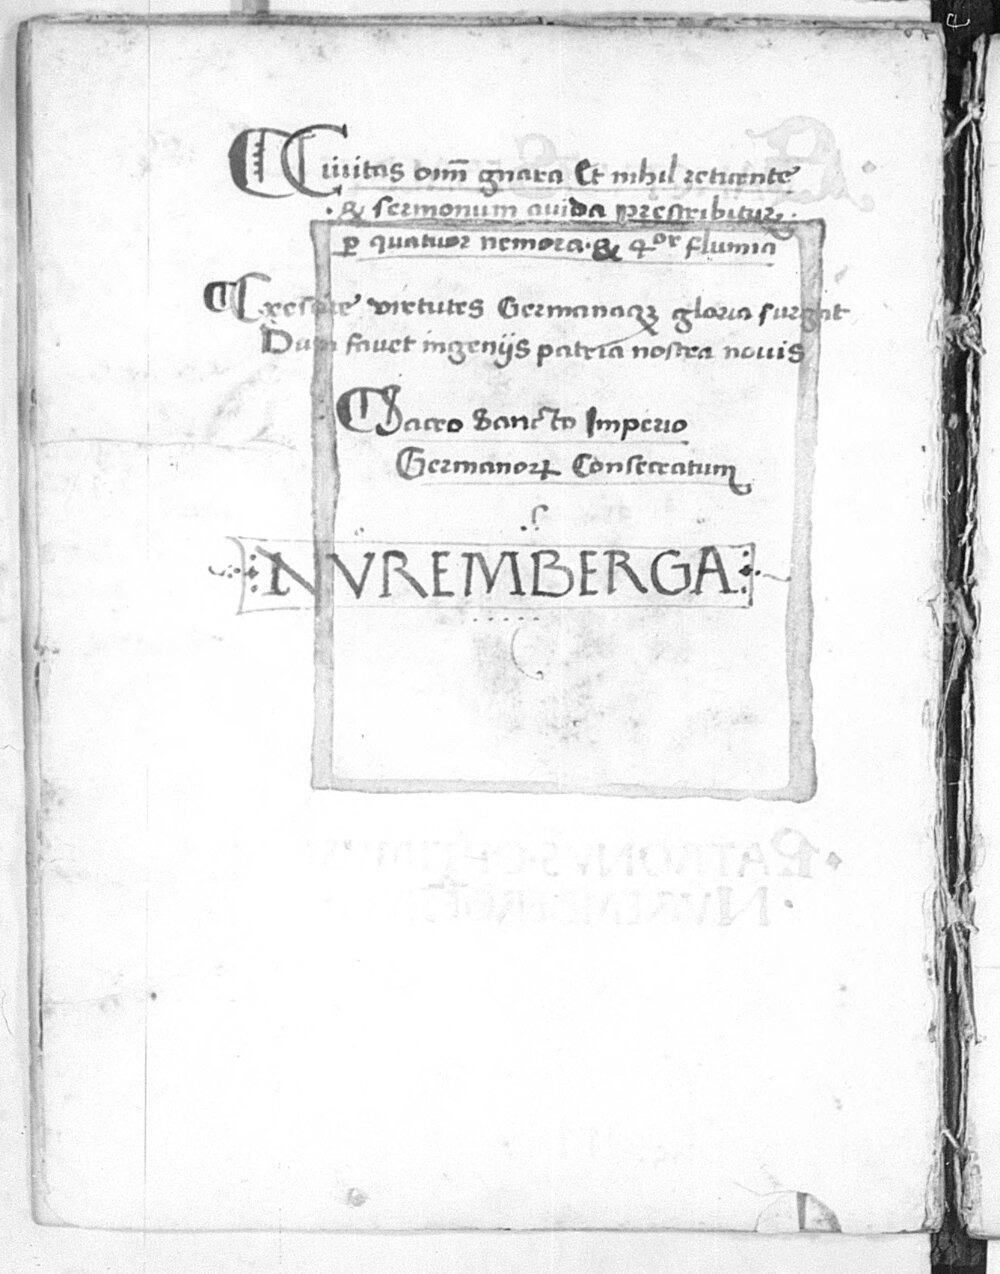 Ciuitas om̅ gnara Et nihil reticente
& sermonum auida prescribitur
p quatuor nemora & qor flumia
Crescite virtutes Germanaqꝫ gloria surgat
Dum fauet ingenijs patria nostra nouis
Sacro Sancto Imperio
Germanorꝝ Consecratum
NVREMBERGA